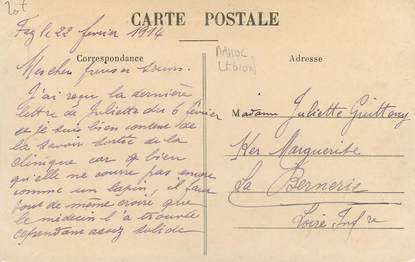 CARTE POSTALE
Fez le 22 février 1914
Correspondance
MAROC
LEGION
Adresse
Mes chers frères et sœurs.
J'ai reçu la dernière
lettre de Juliette du 6 février
et je suis bien content de
la savoir sortie de la
clinique car si bien
qu'elle ne courre pas encore
comme un lapin, il faut
tout de même croire que
le médecin l'a trouvée
cependant assez solide
Madame Juliette Guitteny
Ker Marguerite
La Bernerie
Loire Infre